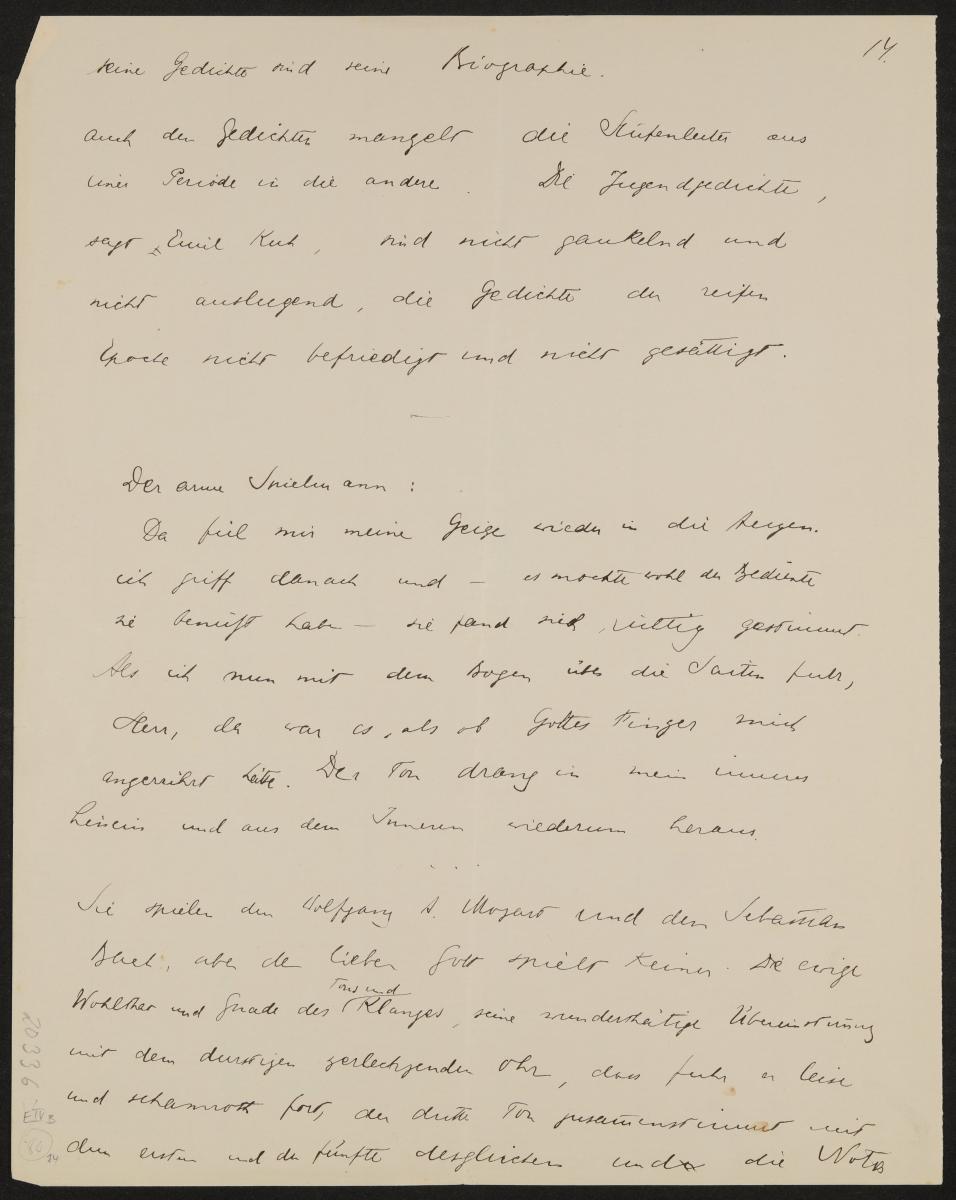 14.
seine Gedichte sind seine Biographie.
auch den Gedichten mangelt die Stufenleiter aus
einer Periode in die andere. Die Jugendgedichte,
sagt Emil Kuh, sind nicht gaukelnd und
nicht auslugend, die Gedichte der reifen
Epoche nicht befriedigt und nicht gesättigt.
—
Der arme Spielmann:
Da fiel mir meine Geige wieder in die Augen.
ich griff danach und – es mochte wohl der Bediente
sie benützt haben – sie fand sich richtig gestimmt.
Als ich nun mit dem Bogen über die Saiten fuhr,
Herr, da war es, als ob Gottes Finger mich
angerührt hätte. Der Ton drang in mein inneres
hinein und aus dem Inneren wiederum heraus.
. . .
Sie spielen den Wolfgang A. Mozart und den Sebastian
Bach, aber den lieben Gott spielt keiner. Die ewige
Wohlthat und Gnade des Tons und Klanges, seine wunderthätige Übereinstimmung
mit dem durstigen zerlechzenden Ohr, dass fuhr er leise
und schamroth fort, der dritte Ton zusammenstimmt mit
dem ersten und der fünfte desgleichen und die Nota
20336
E IV B
80
14